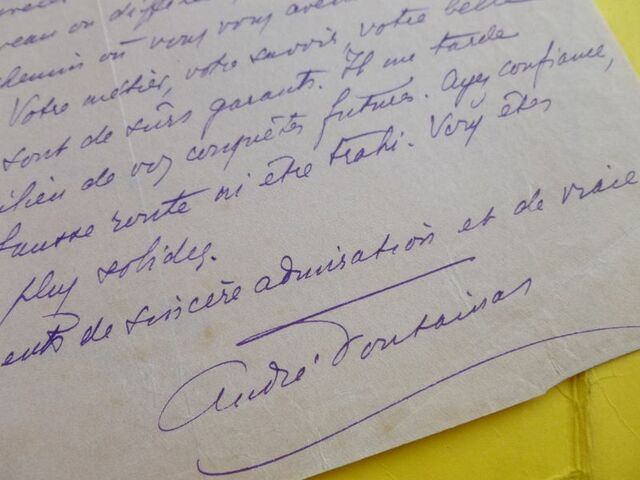 veau ou différe
chemin où vous vous aven
Votre métier, votre savoir, votre belle
sont de sûrs garants. Il me tarde
ilieu de vos conquêtes futures. Ayez confiance,
fausse route ni être trahi. Vous êtes
plus solides.
ents de sincère admiration et de vraie
André Fontainas